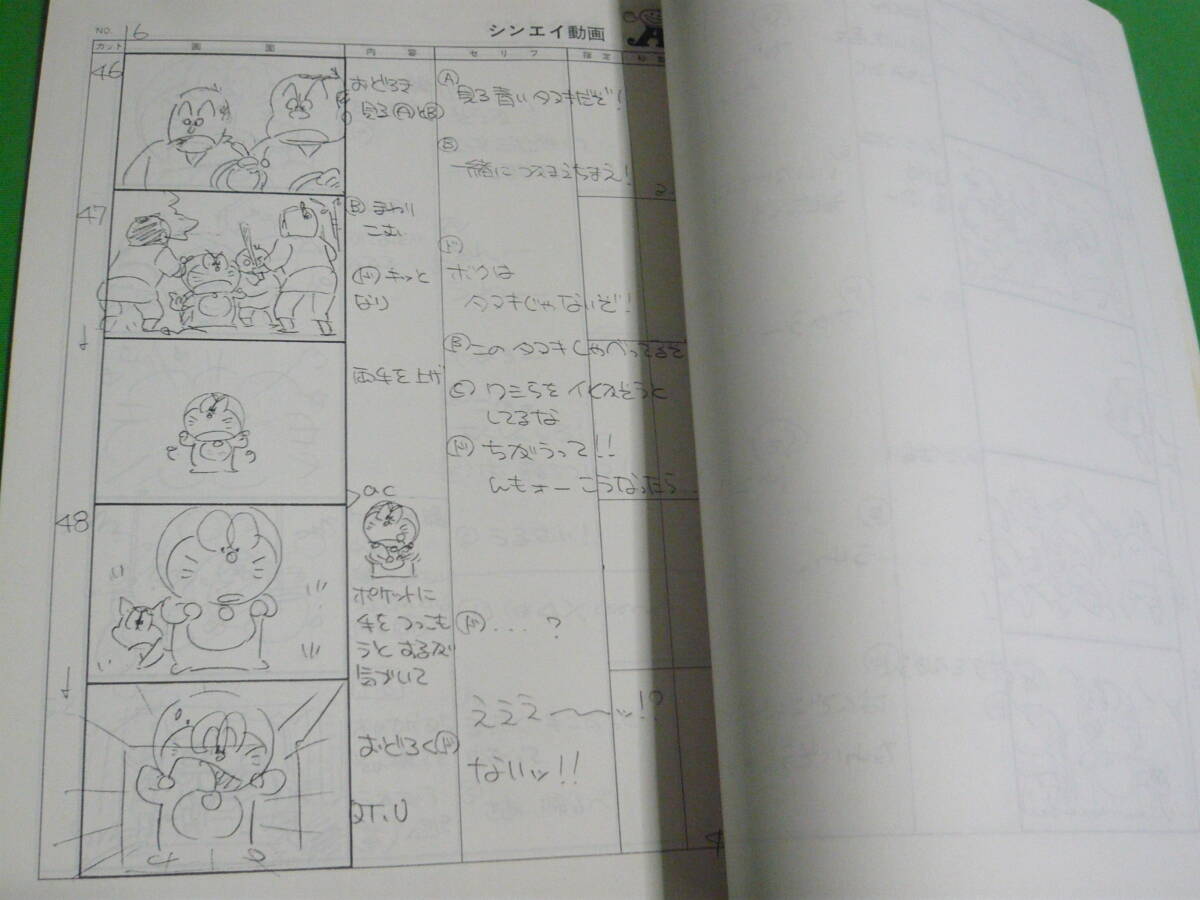 NO. 16
シンエイ動画
カット 画面 内容 セリフ 指定
46
おどろき
見る Ⓐ と Ⓑ
Ⓐ
見ろ 青いタヌキだぞ!
Ⓑ
一緒につかまえちまえ!
47
Ⓑ まわり
こむ
㋣ キッと
なり
ド
ボクは
タヌキじゃないぞ!
Ⓑ このタヌキしゃべってるぞ
両手を上げ
Ⓒ ワシらを
してるな
ド ちがうって!!
んもォー こうなったら...
48
ac
ポケットに
手をつっこも
うとするが
気づいて
ド .... ?
おどろく ド
えええ〜〜ッ!?
ないッ!!
QT.U